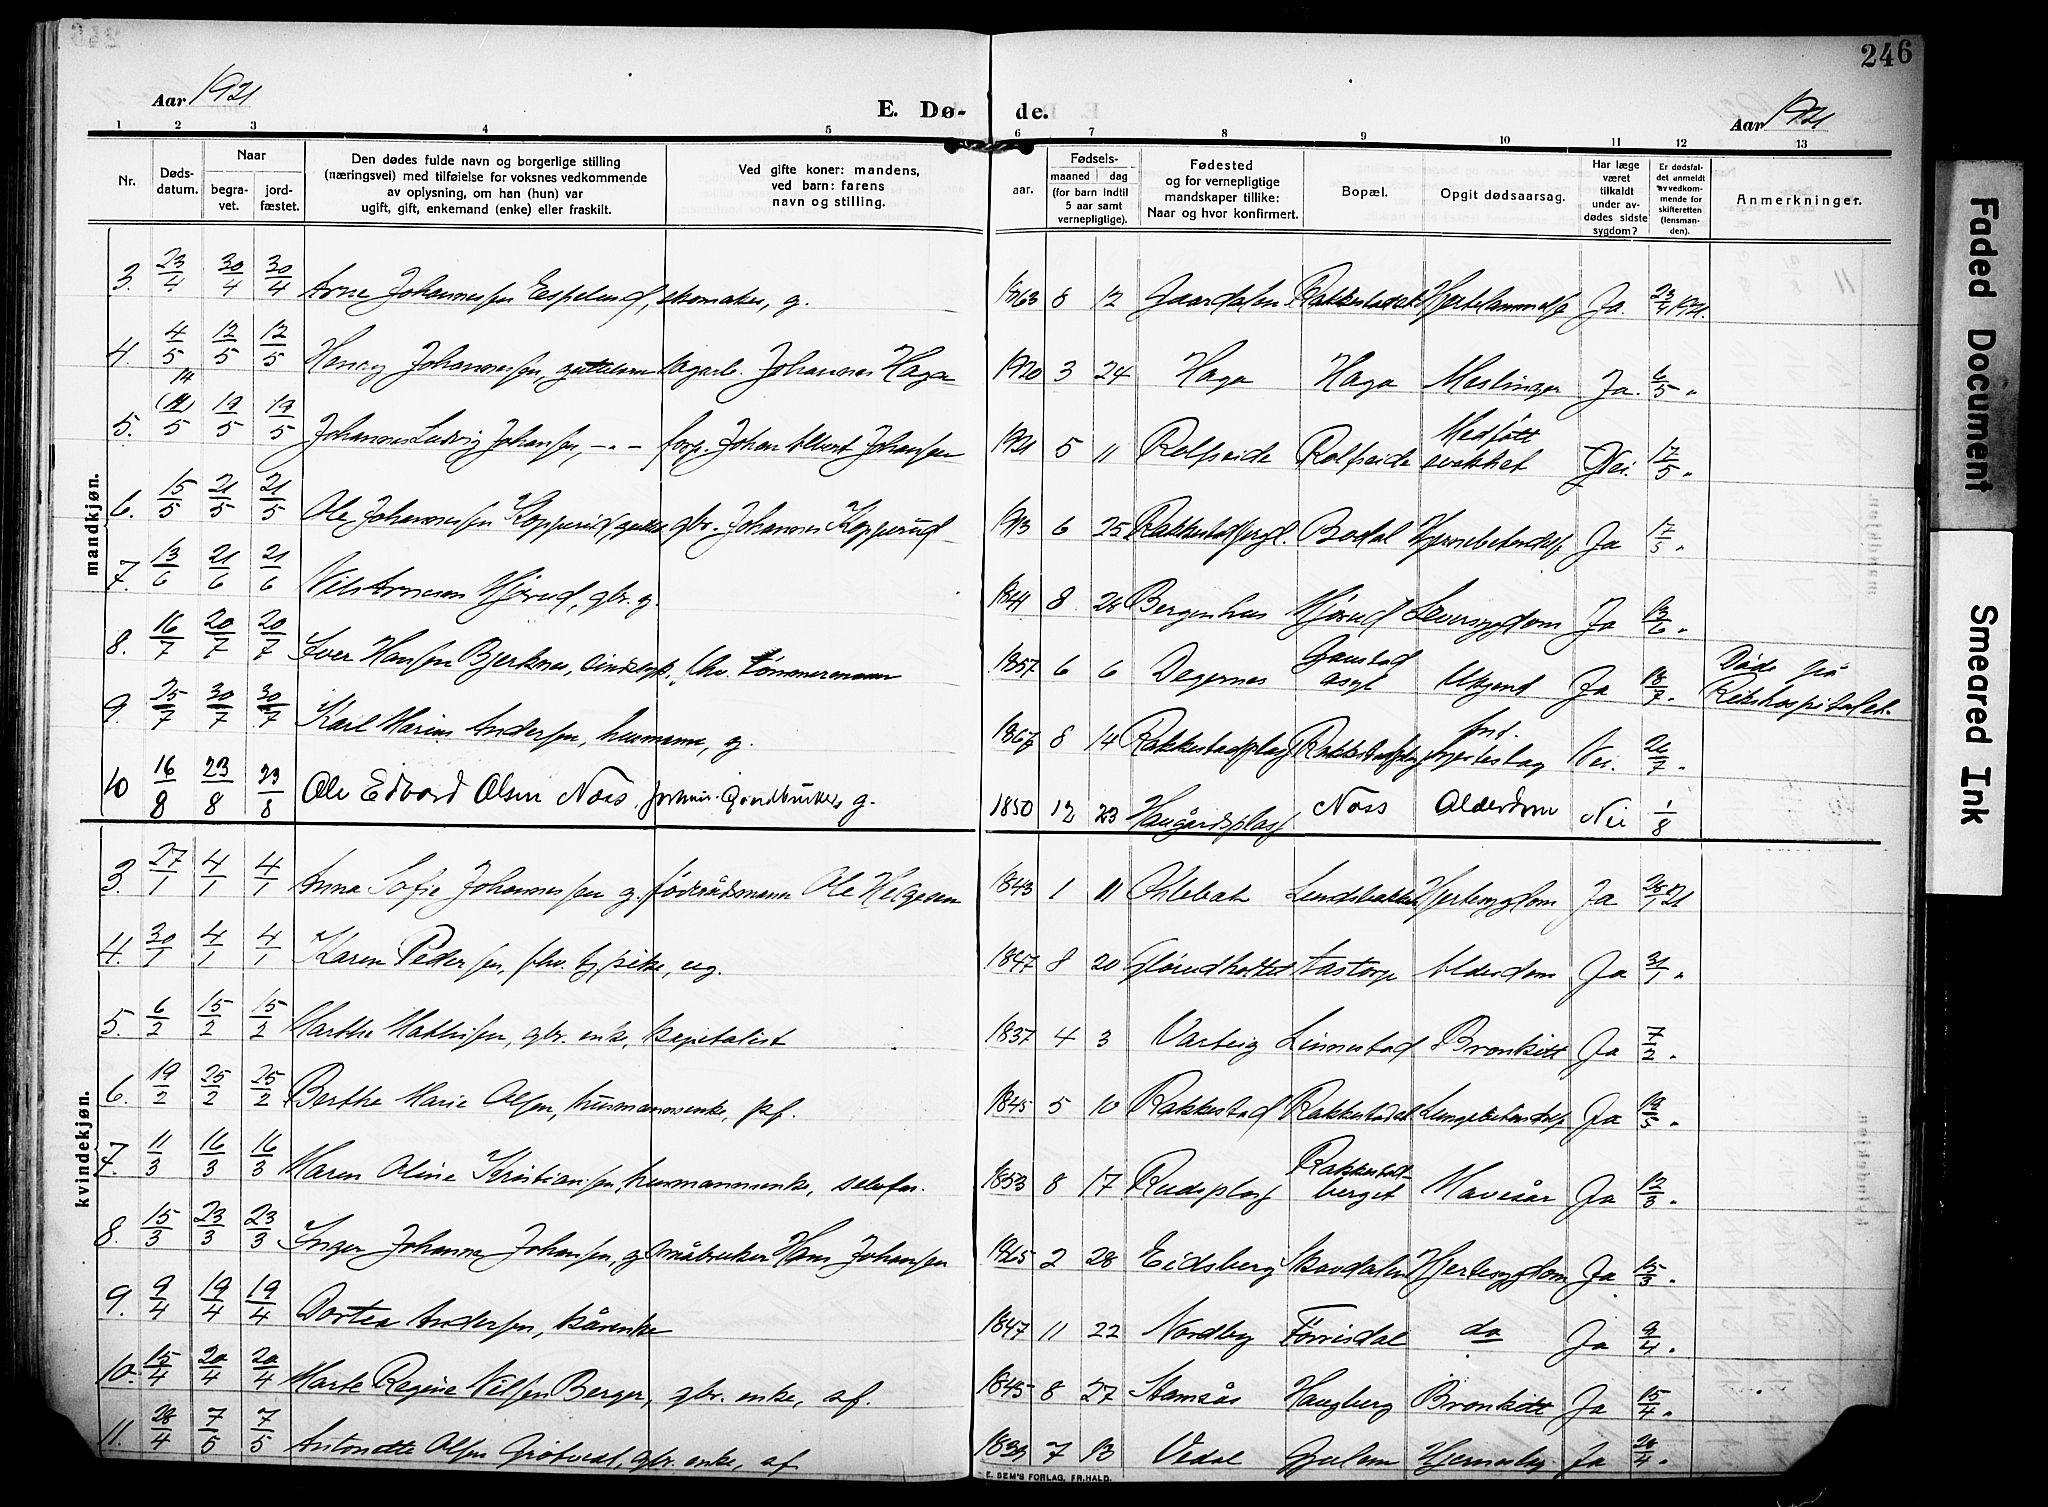 246
Aar 1921
E. Dø- de.
Aar 1921
1 2 3 4 5 6 7 8 9 10 11 12 13
Nr.
Døds-datum.
Naar
begra-vet.
jord-fæstet.
Den dødes fulde navn og borgerlige stilling
(næringsvei) med tilføielse for voksnes vedkommende
av oplysning, om han (hun) var
ugift, gift, enkemand (enke) eller fraskilt.
Ved gifte koner: mandens,
ved barn: farens
navn og stilling.
aar.
Fødsels-
maaned dag
(for barn indtil
5 aar samt
vernepligtige).
Fødested
og for vernepligtige
mandskaper tillike:
Naar og hvor konfirmert.
Bopæl.
Opgit dødsaarsag.
Har læge
været
tilkaldt
under av-
dødes sidste
sygdom?
Er dødsfal-
det anmeldt
av vedkom-
mende for
skifteretten
(lensman-
den).
Anmerkninger.
mandkjøn.
3. 23/4 30/4 30/4 Arne Johannessen Espelund, skomaker, g. 1863 8 12 Gaardalen Rakkestadet Ja. 23/4 1921.
4. 4/5 12/5 12/5 Henry Johannessen, Johannes Haga 1920 3 24 Haga Haga Meslinger Ja. 6/5 "
5. 14 (11)/5 19/5 19/5 Johannes Ludvig Johansen, -"- forp. Johan Albert Johansen 1921 5 11 Rolfseide Rolfseide Medfött svakhet Nei. 17/5 "
6. 15/5 21/5 21/5 Ole Johannessen Kopperud, gbr. Johannes Kopperud 1913 6 25 Bodal Ja 17/5 "
7. 13/6 21/6 21/6 Nils Arnesen Hjörud, gbr. g. 1841 8 28 Bergenhus Hjörud Leversygdom Ja 13/6 "
8. 16/7 20/7 20/7 Iver Hansen Bjerknes, fhv. Tömmermann 1857 6 6 Degernes Gaustad asyl Ukjend Ja 18/7 " Döde på Rikshospitalet.
9. 25/7 30/7 30/7 Karl Marius Andersen, husmann, g. 1867 8 14 Rakkestadplads Hjerteslag Nei. 26/7 "
10 16/8 23/8 23/8 Ole Edvard Olsen Næss. Gaardbruker g. 1850 12 23 Haugårdsplass Næss Alderdom Nei 1/8
kvindekjøn.
3. 27/1 4/1 4/1 Anna Sofie Johannessen g. föderådsmann Ole Helgesen 1843 1 11 Ohlebak Lundsbakken Hjertesygdom Ja 28/1 21
4. 30/1 4/1 4/1 Karen Pedersen, fhv. tj. pike, ug. 1847 8 20 Glörudholtet Aastorp Alderdom Ja 31/1 "
5. 6/2 15/2 15/2 Marthe Mathisen, gbr. enke, kapitalist 1837 4 3 Varteig Linnestad Bronkitt Ja 7/2 "
6. 19/2 25/2 25/2 Berthe Marie Olsen, husmannsenke, pf. 1845 5 10 Rakkestad Rakkestadet Ja 19/5 "
7. 11/3 16/3 16/3 Maren Oline Kristiansen, husmannsenke, selvfor. 1853 8 17 Rudsplass Rakkestad-berget Mavesår Ja 12/3 "
8. 15/3 23/3 23/3 Inger Johanne Johansen, g. småbruker Hans Johansen 1865 2 28 Eidsberg Skovdalen Hjertesygdom Ja 15/3 "
9. 9/4 19/4 19/4 Dortea Andersen, kårenke 1847 11 22 Nordby Förrisdal do Ja 9/4 "
10. 15/4 20/4 20/4 Marte Regine Nilsen Berger, gbr. enke, af. 1845 8 27 Stamsås Haugberg Bronkitt Ja 15/4 "
11. 28/4 7/5 7/5 Antonette Olsen Grötvedt, gbr. enke, af. 1839 7 13 Vedal Gjulem Hjerneslag Ja 28/4 "
E. SEM'S FORLAG, FR.HALD.
Faded Document
Smeared Ink